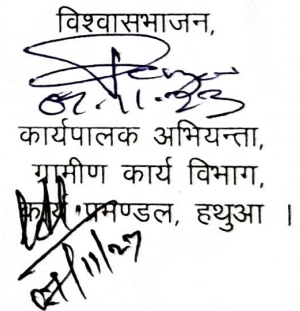 विश्वासभाजन,
07.11.23
कार्यपालक अभियन्ता,
ग्रामीण कार्य विभाग,
कार्य प्रमण्डल, हथुआ ।